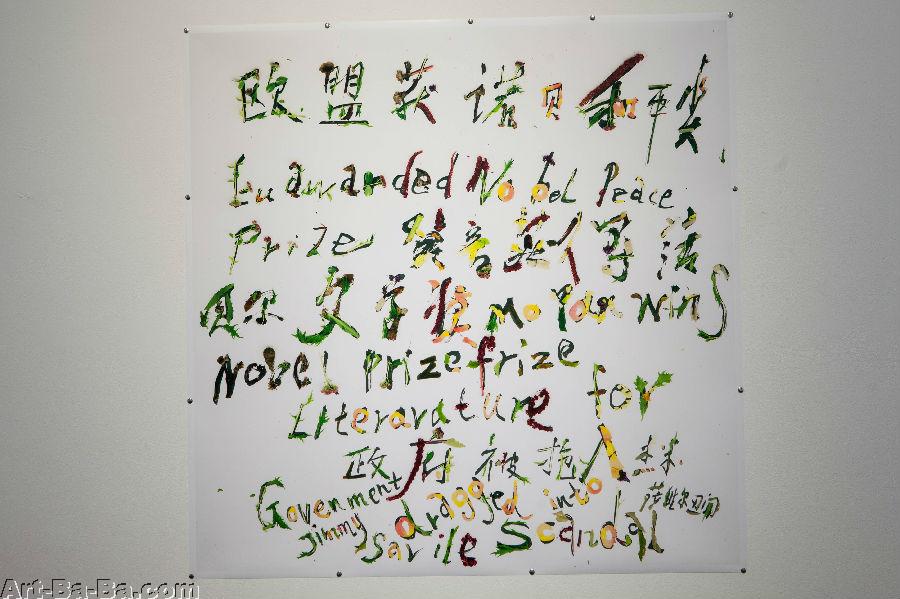 欧盟获诺贝和平奖
Eu awarded Nobel Peace
Prize 诺
贝尔文学奖 Mo Yan wins
Nobel prize frize
Literarature for
政府被拖入吉米
Govenment dragged into 萨维尔丑闻
Jimmy Savile Scandal
Art-Ba-Ba.com